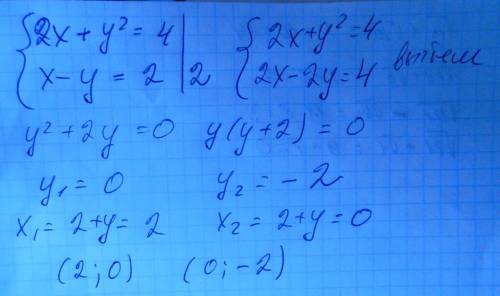 2x + y² = 4 | 2x + y² = 4
x - y = 2 | 2 2x - 2y = 4 вытем
y² + 2y = 0 y(y+2) = 0
y₁ = 0 y₂ = -2
x₁ = 2+y = 2 x₂ = 2+y = 0
(2; 0) (0; -2)